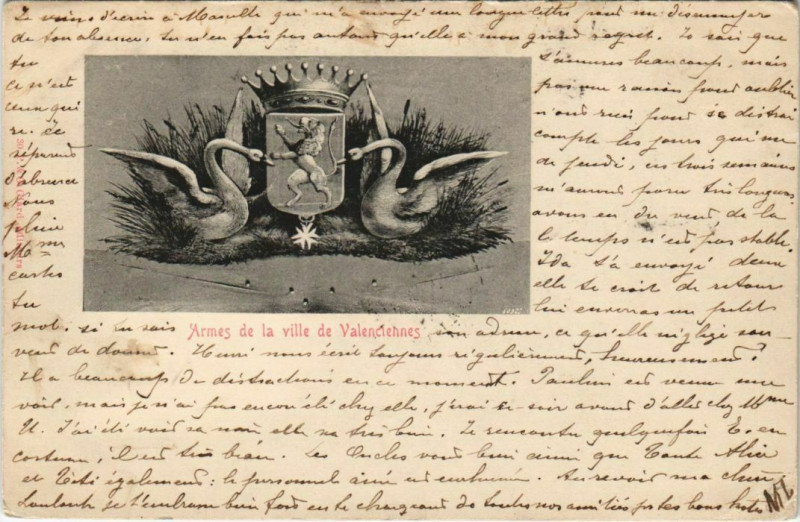 Je viens d'écrire à Marcelle qui m'a envoyé une longue lettre pour me désennuyer
de ton absence, tu n'en fais pas autant qu'elle à mon grand regret. Je sais que
tu t'amuses beaucoup, mais
ce n'est pas une raison pour oublier
ceux qui n'ont rien pour se distrai
re. Je compte les jours qui me
séparent de jeudi, ces trois semaines
d'absence m'auront paru très longues.
Nous avons eu du vent de la
pluie le temps n'est pas stable.
Mme Ida t'a envoyé deux
cartes elle te croit de retour
tu lui enverras un petit
mot, si tu sais son adresse, ce qu'elle néglige sou-
Armes de la ville de Valenciennes
vent de donner. Henri nous écrit toujours régulièrement, heureusement!
Il a beaucoup de distractions en ce moment. Pauline est venue me
voir, mais je n'ai pas encore été chez elle, j'irai ce soir avant d'aller chez Mme
U. J'ai été voir sa mère elle va très bien. Je rencontre quelquefois E. en
costume, il est très beau. Les Oncles vont bien ainsi que Tante Alice
et Titi également: le personnel aussi est
Au revoir ma chère
Louloute je t'embrasse bien fort en te chargeant de toutes nos amitiés pour tes bons hôtes
MT